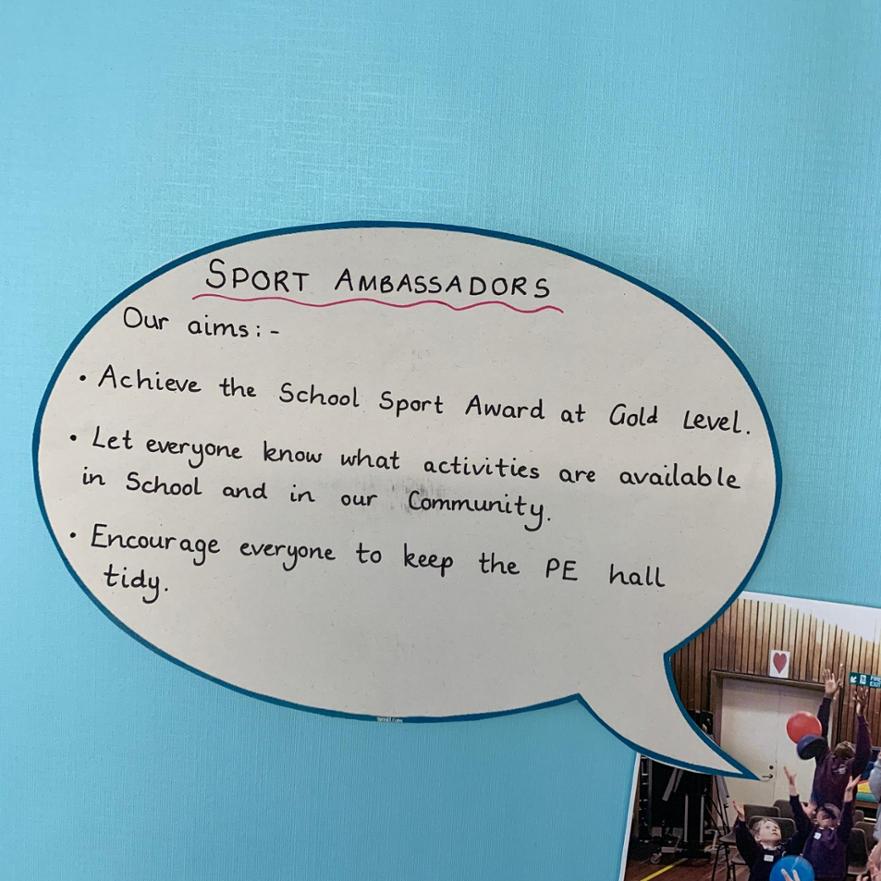 SPORT AMBASSADORS
Our aims:-
• Achieve the School Sport Award at Gold Level.
• Let everyone know what activities are available
in School and in our Community.
• Encourage everyone to keep the PE hall
tidy.